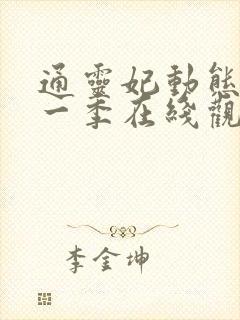 通靈妃動態
一季在綫觀
李金坤